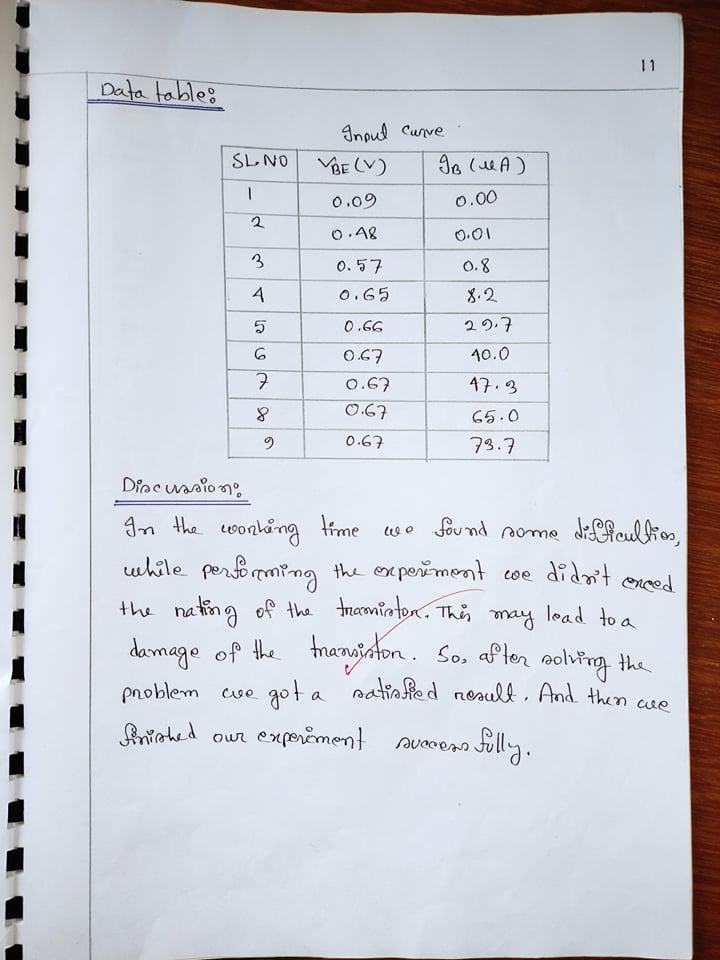 11
Data table:
Input curve
SL.NO VBE (V) IB (μA)
1 0.09 0.00
2 0.48 0.01
3 0.57 0.8
4 0.65 8.2
5 0.66 29.7
6 0.67 40.0
7 0.67 47.3
8 0.67 65.0
9 0.67 73.7
Discussion:
In the working time we found some difficulties,
while performing the experiment we didn't exceed
the rating of the transistor. This may lead to a
damage of the transistor. So, after solving the
problem we got a satisfied result. And then we
finished our experiment successfully.